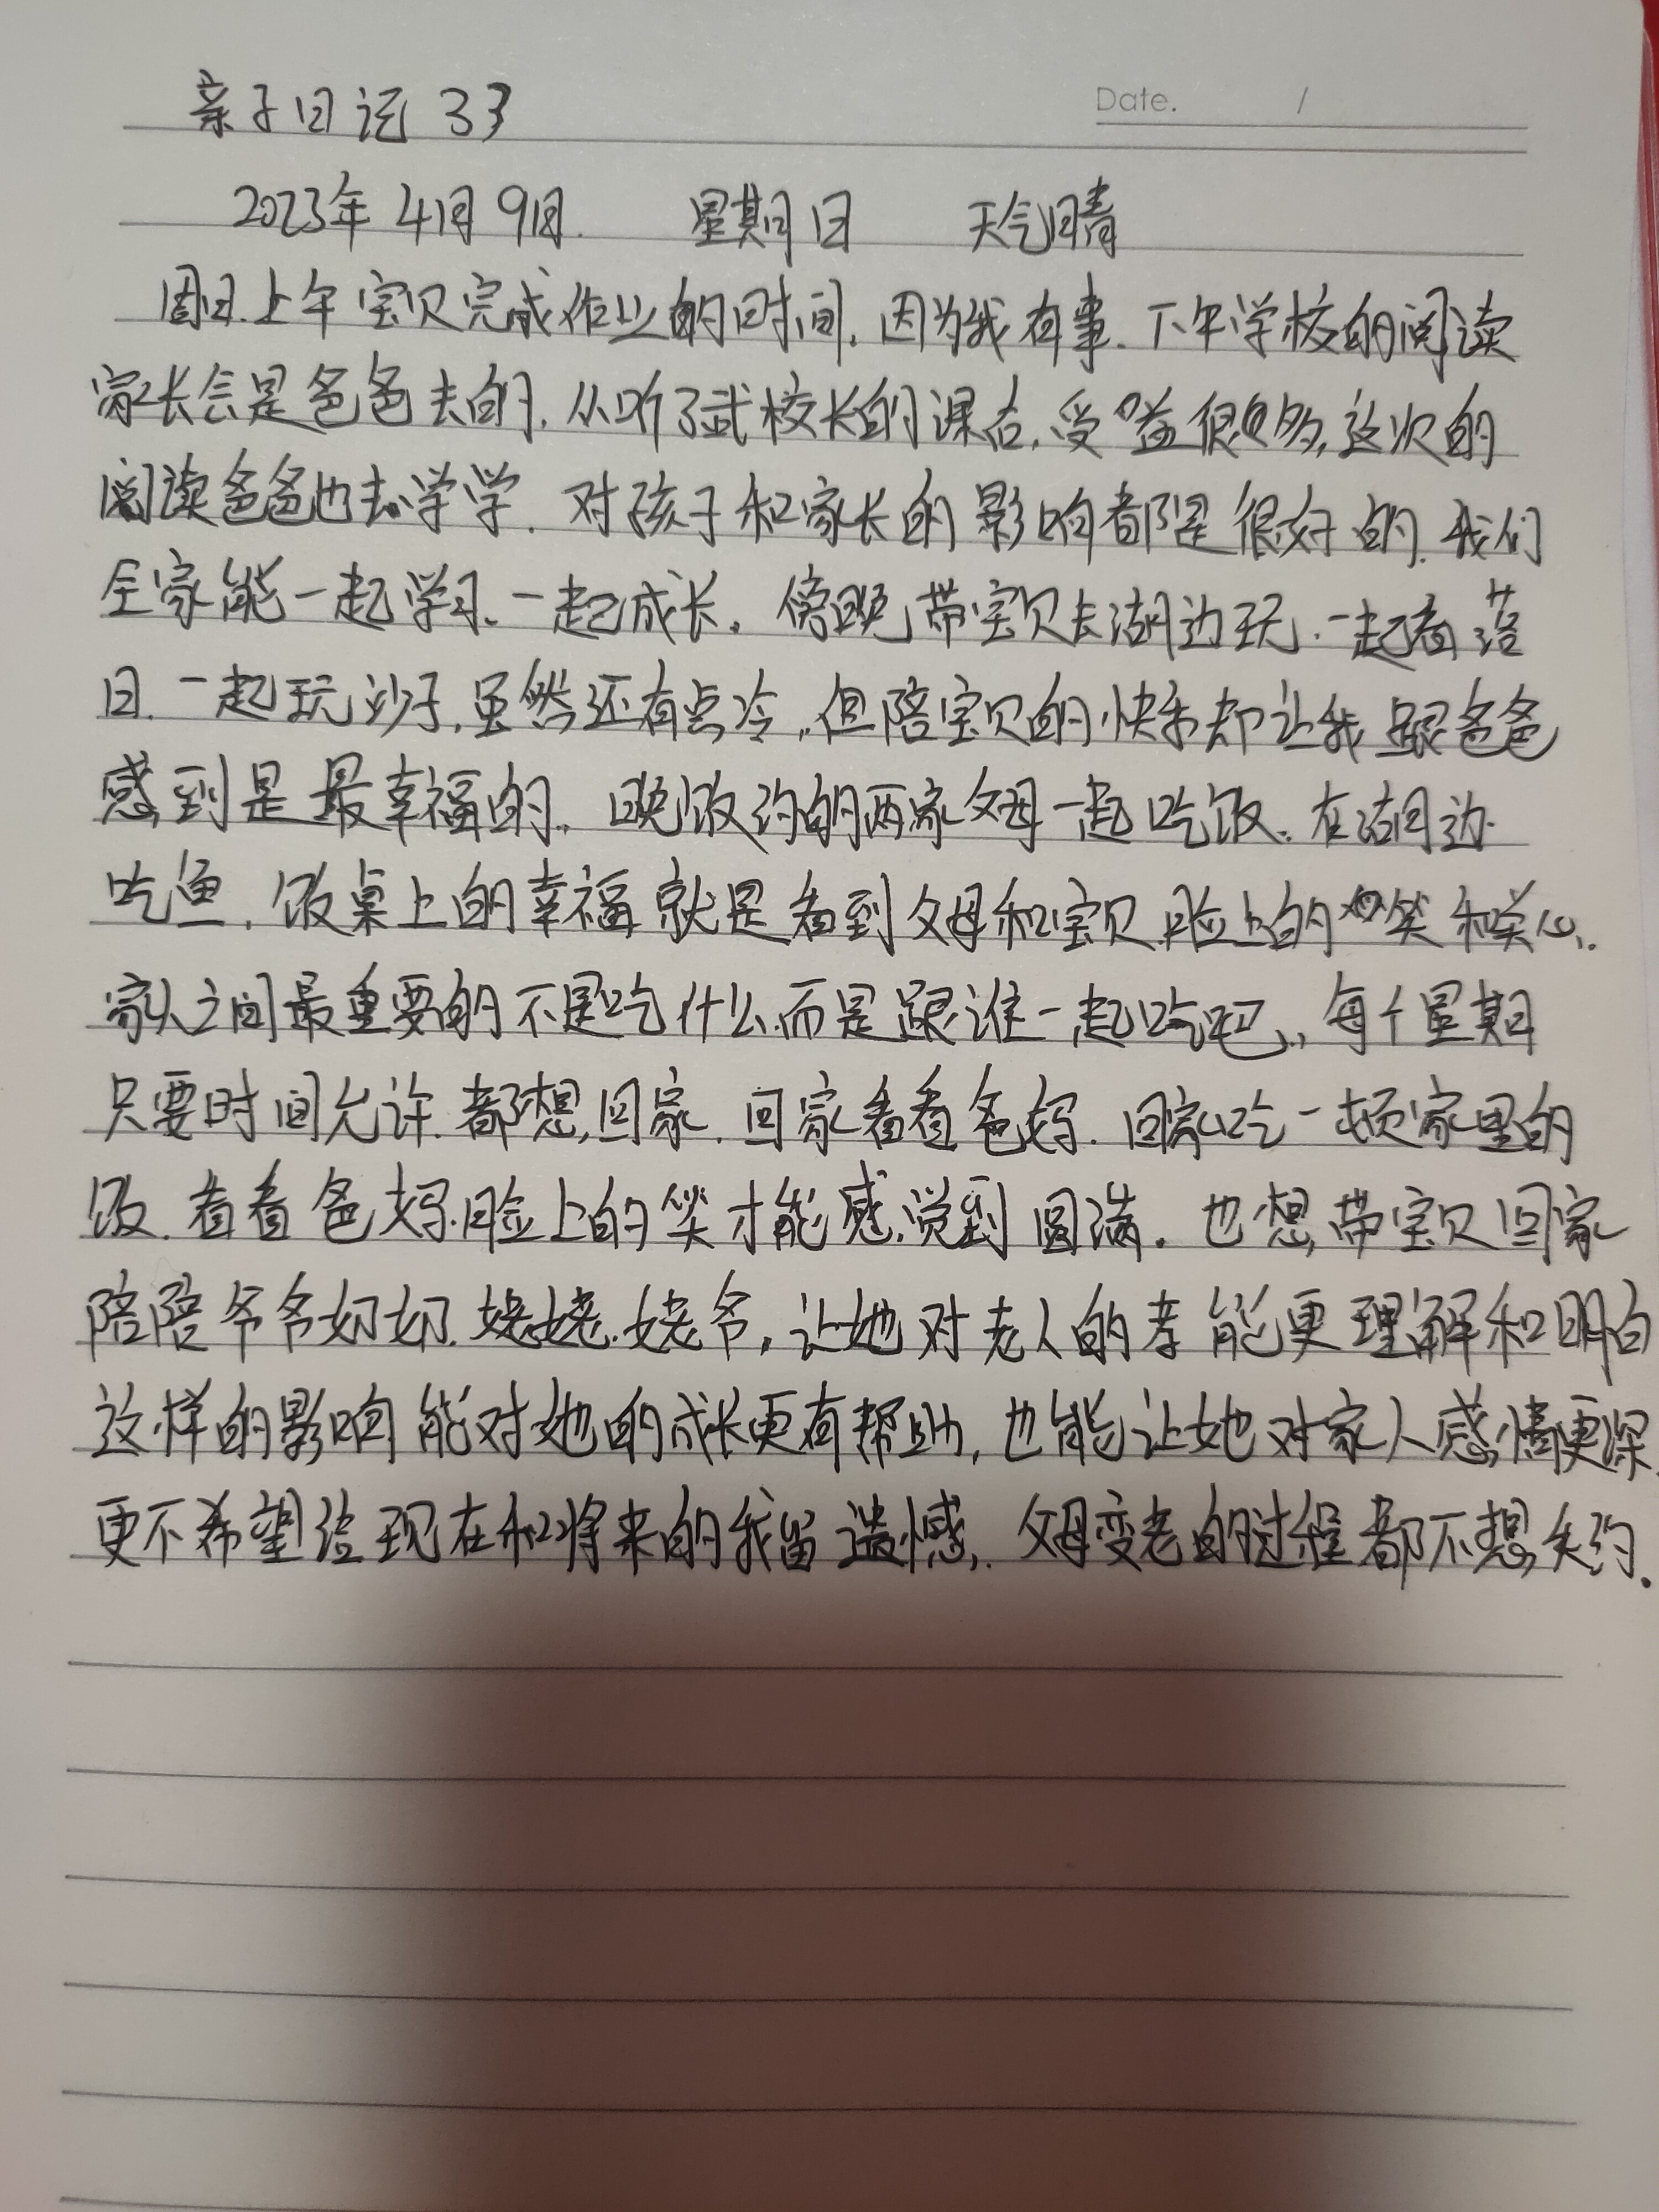 亲子日记 33
Date. /
2023年 4月 9日. 星期日 天气晴
周日.上午宝贝完成作业的时间.因为我有事.下午学校的阅读
家长会是爸爸去的.从听了武校长的课后.受益很多,这次的
阅读爸爸也去学学.对孩子和家长的影响都是很好的.我们
全家能一起学习、一起成长。傍晚带宝贝去湖边玩.一起看落
日.一起玩沙子.虽然还有点冷.但陪宝贝的快乐却让我跟爸爸
感到是最幸福的.晚饭约的两家父母一起吃饭.在湖边
吃鱼.饭桌上的幸福就是看到父母和宝贝脸上的笑和关心.
家人之间最重要的不是吃什么.而是跟谁一起吃吧.每个星期
只要时间允许.都想回家.回家看看爸妈.回家吃一顿家里的
饭.看看爸妈脸上的笑才能感觉到圆满。也想带宝贝回家
陪陪爷爷奶奶.姥姥.姥爷,让她对老人的孝能更理解和明白
这样的影响能对她的成长更有帮助,也能让她对家人感情更深.
更不希望给现在和将来的我留遗憾.父母变老的过程都不想失约.